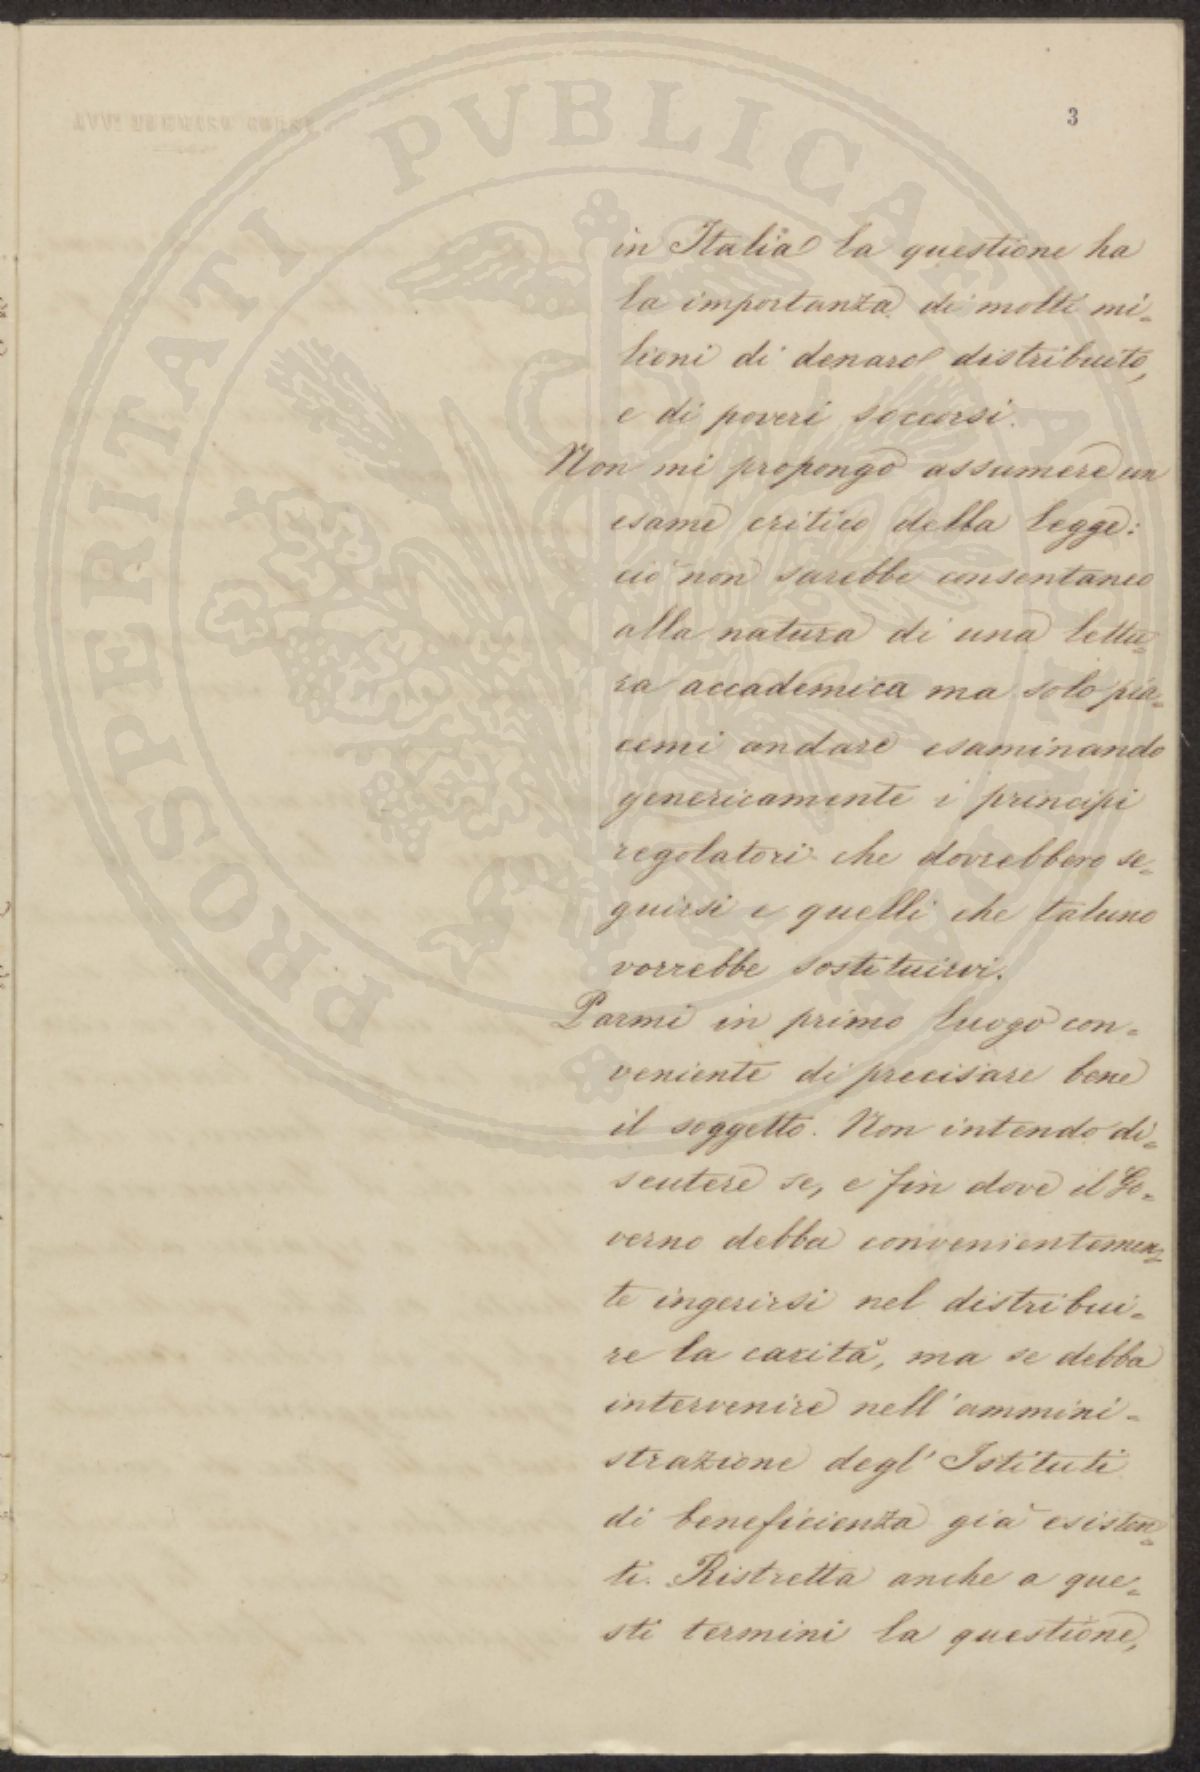 3
PROSPERITATI PUBLICAE AUGENDAE
in Italia la questione ha
la importanza di molti mi=
lioni di denaro distribuito,
e di poveri soccorsi.
Non mi propongo assumere un
esame critico della legge:
ciò non sarebbe consentaneo
alla natura di una lettu=
ra accademica ma solo pia=
cemi andare esaminando
genericamente i principi
regolatori che dovrebbero se=
guirsi e quelli che taluno
vorrebbe sostituirvi.
Parmi in primo luogo con=
veniente di precisare bene
il soggetto. Non intendo di=
scutere se, e fin dove il Go=
verno debba convenientemen=
te ingerirsi nel distribui=
re la carità, ma se debba
intervenire nell'ammini=
strazione degl'Istituti
di beneficienza già esisten=
ti. Ristretta anche a que=
sti termini la questione,